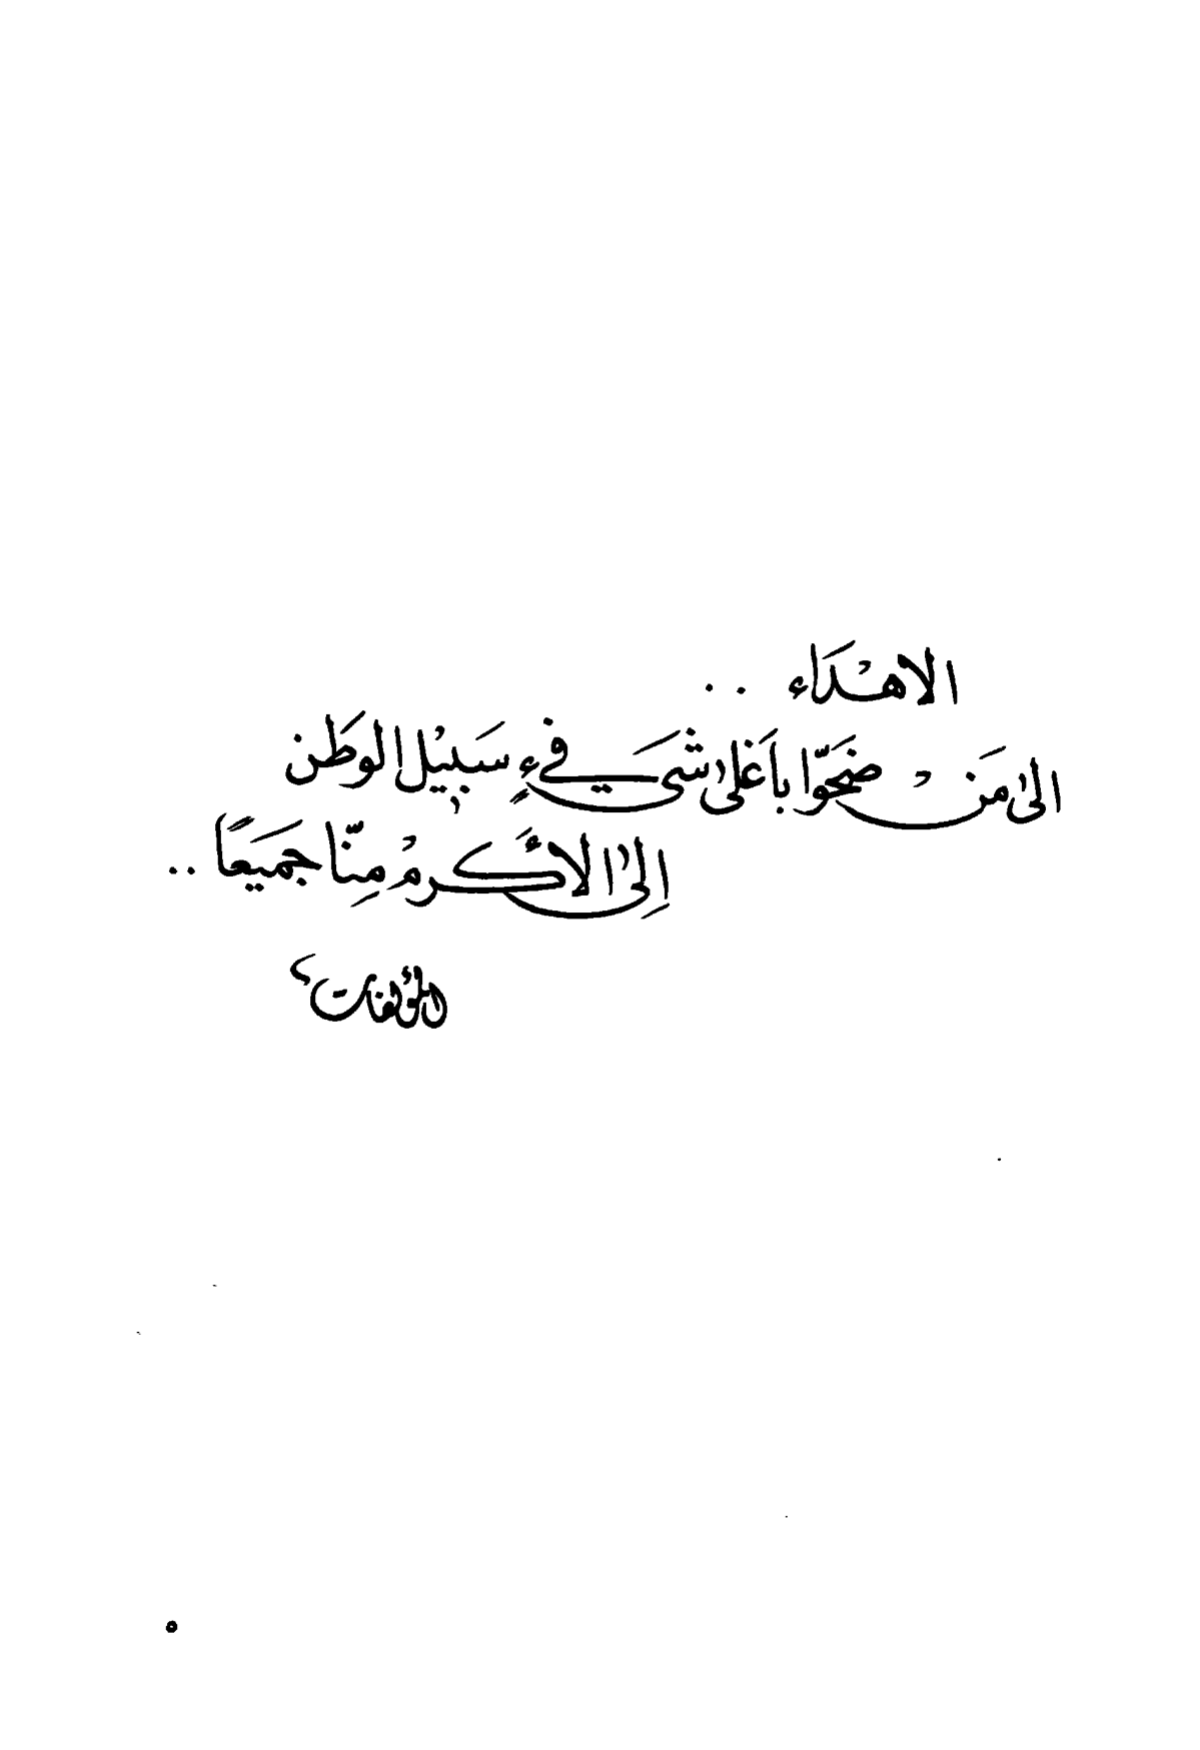 الاهْدَاء ..
الىٰ مَنْ ضَحَّوا بأَغلىٰ شَيءٍ في سَبِيْل الوَطَن
إِلىٰ الأَكرمْ مِنّا جَميَعًا ..
المؤلفات
٥